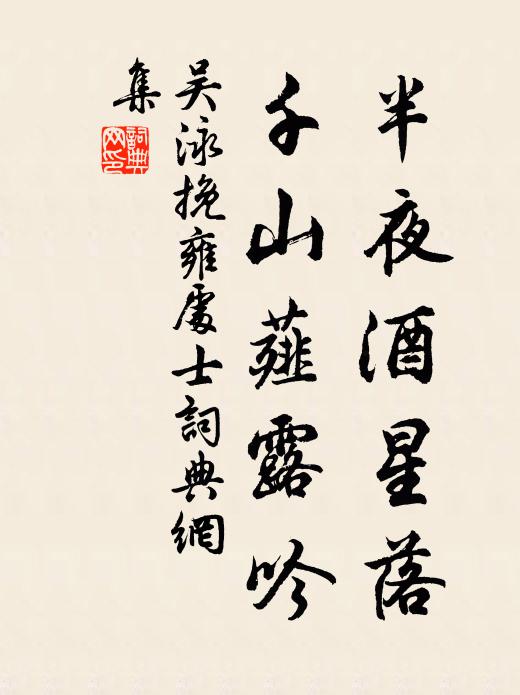 半夜酒星落
千山薤露吟
吴泳挽雍處士詞典網
集
詞典
网印